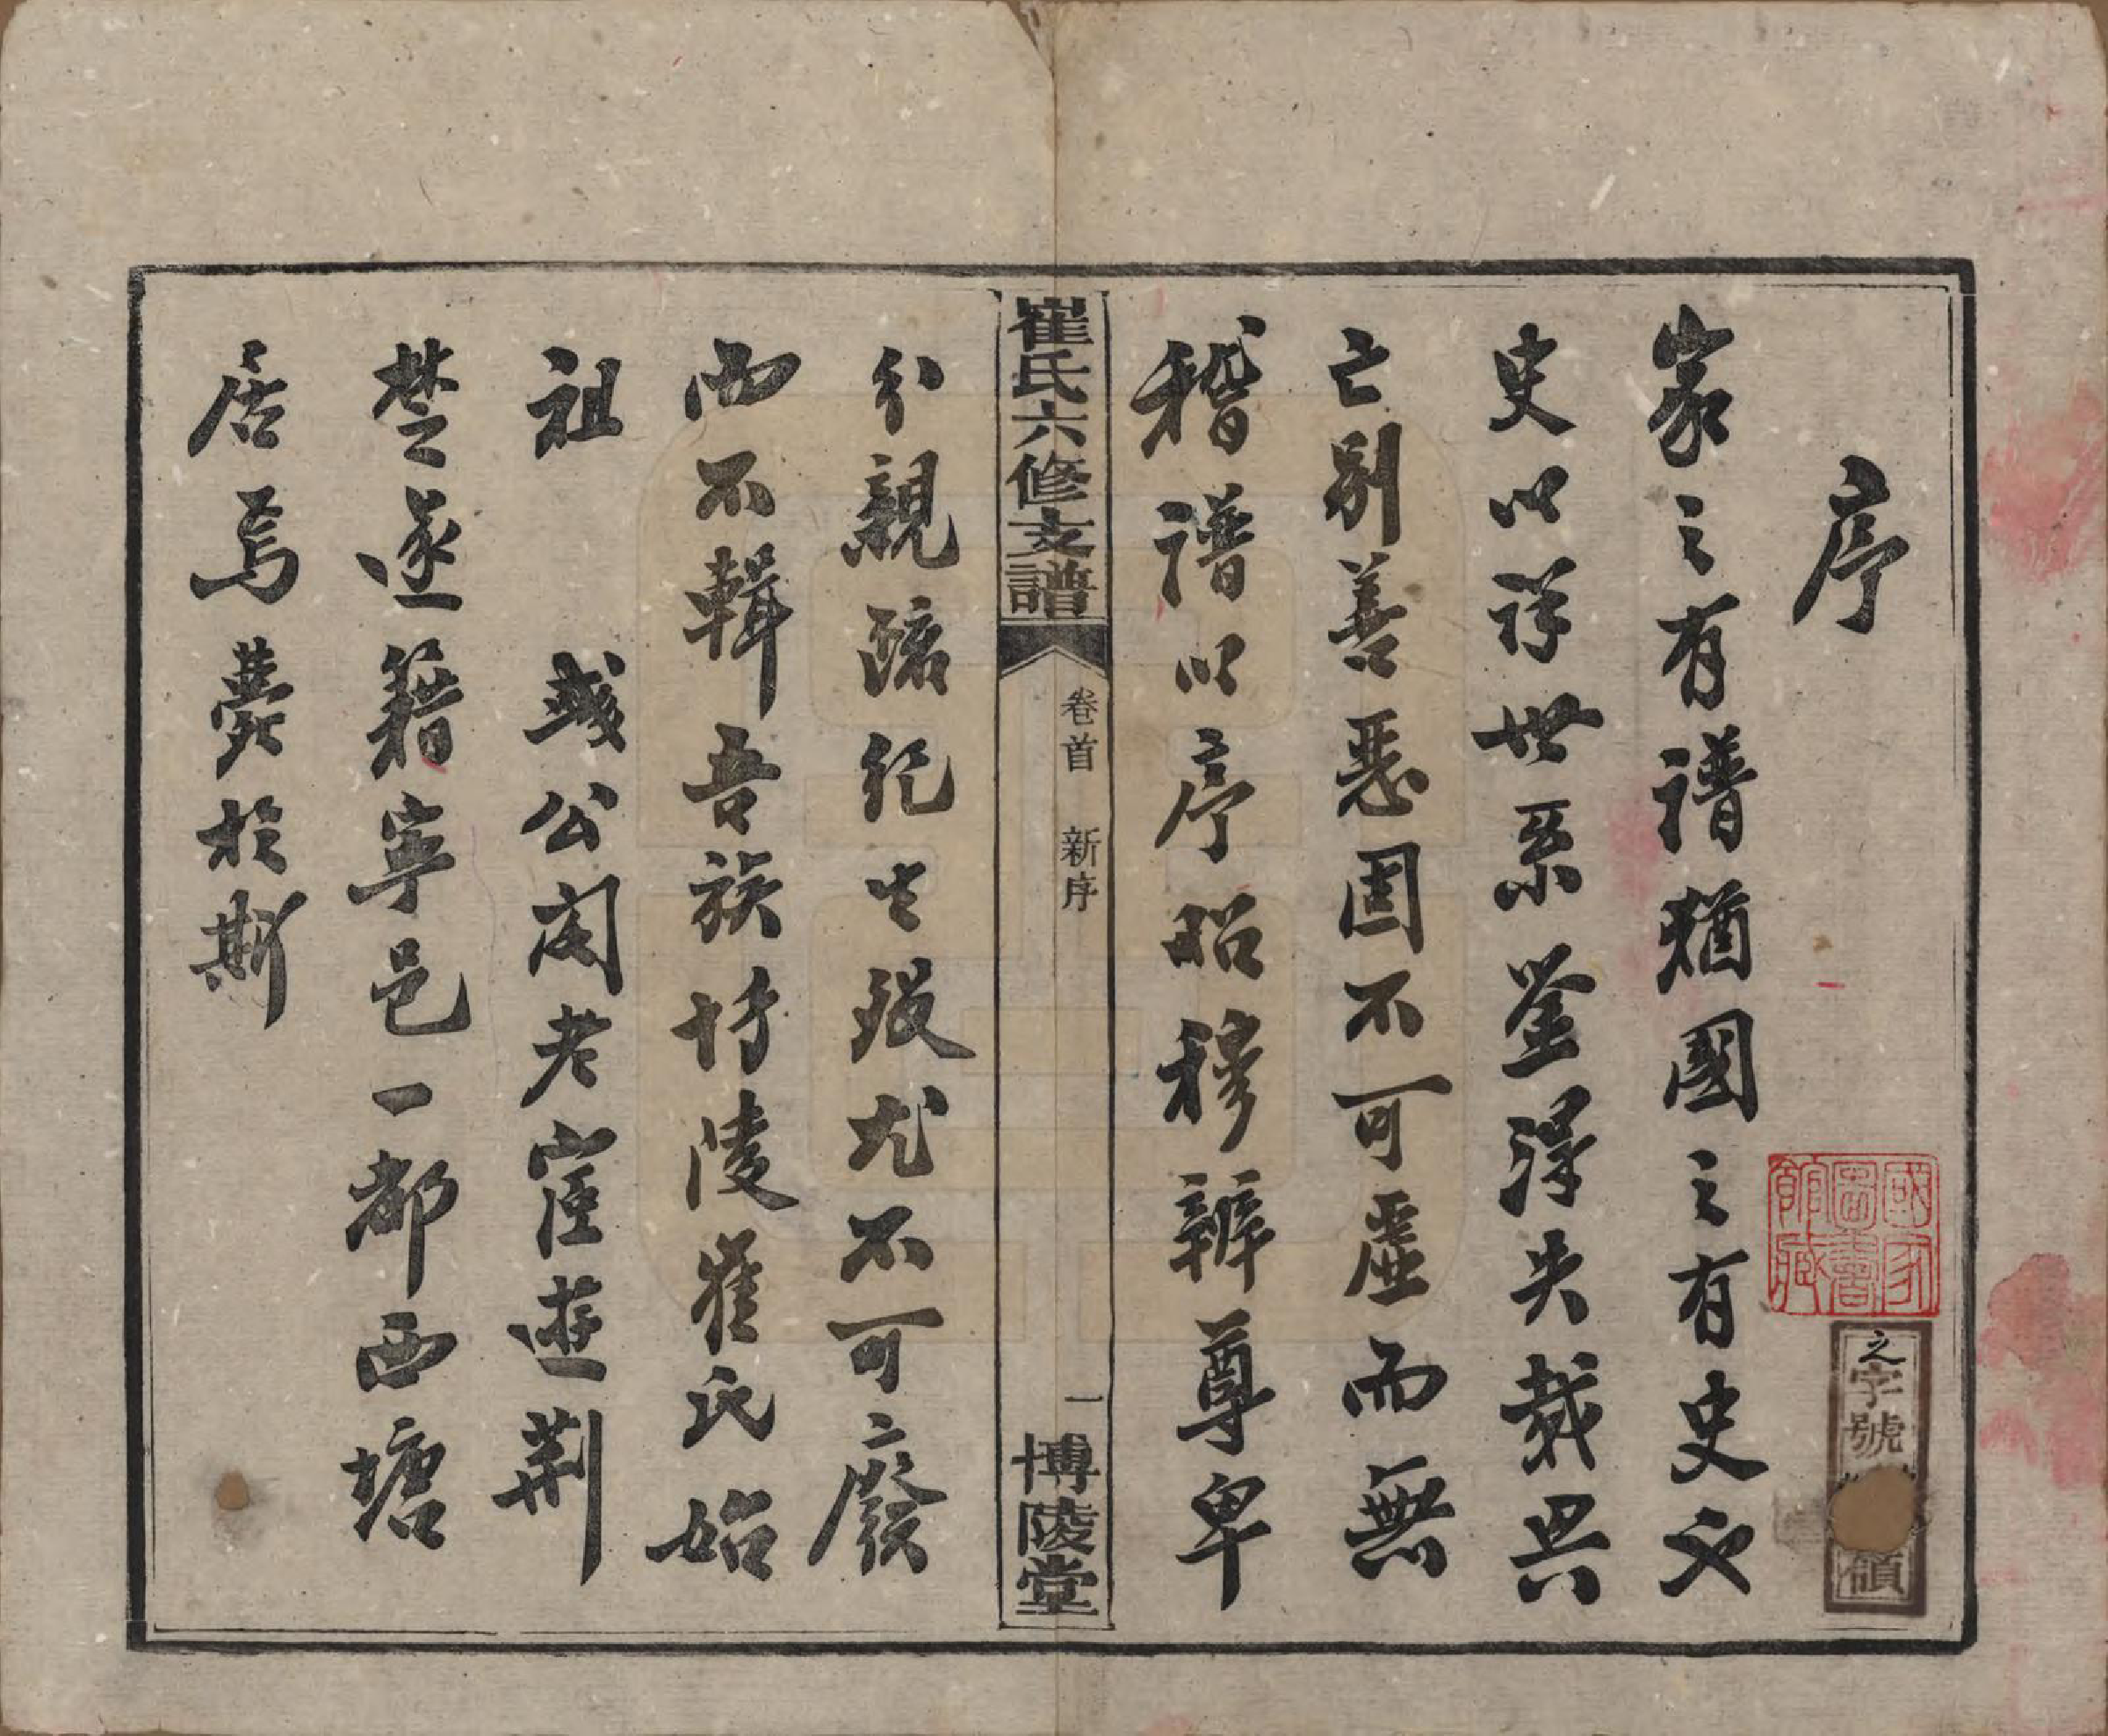 序
家之有譜猶國之有史也
史以詳世系鉴得失裁興
亡别善惡固不可虛而無
稽譜以序昭穆辨尊卑
崔氏六修支譜
卷首 新序
一
博陵堂
分親疏紀生殁尤不可廢
而不輯吾族博陵崔氏始
祖 彧公閥老宦遊荆
楚遂籍寧邑一都西塘
居焉薨於斯
國家圖書館藏
之字號
領